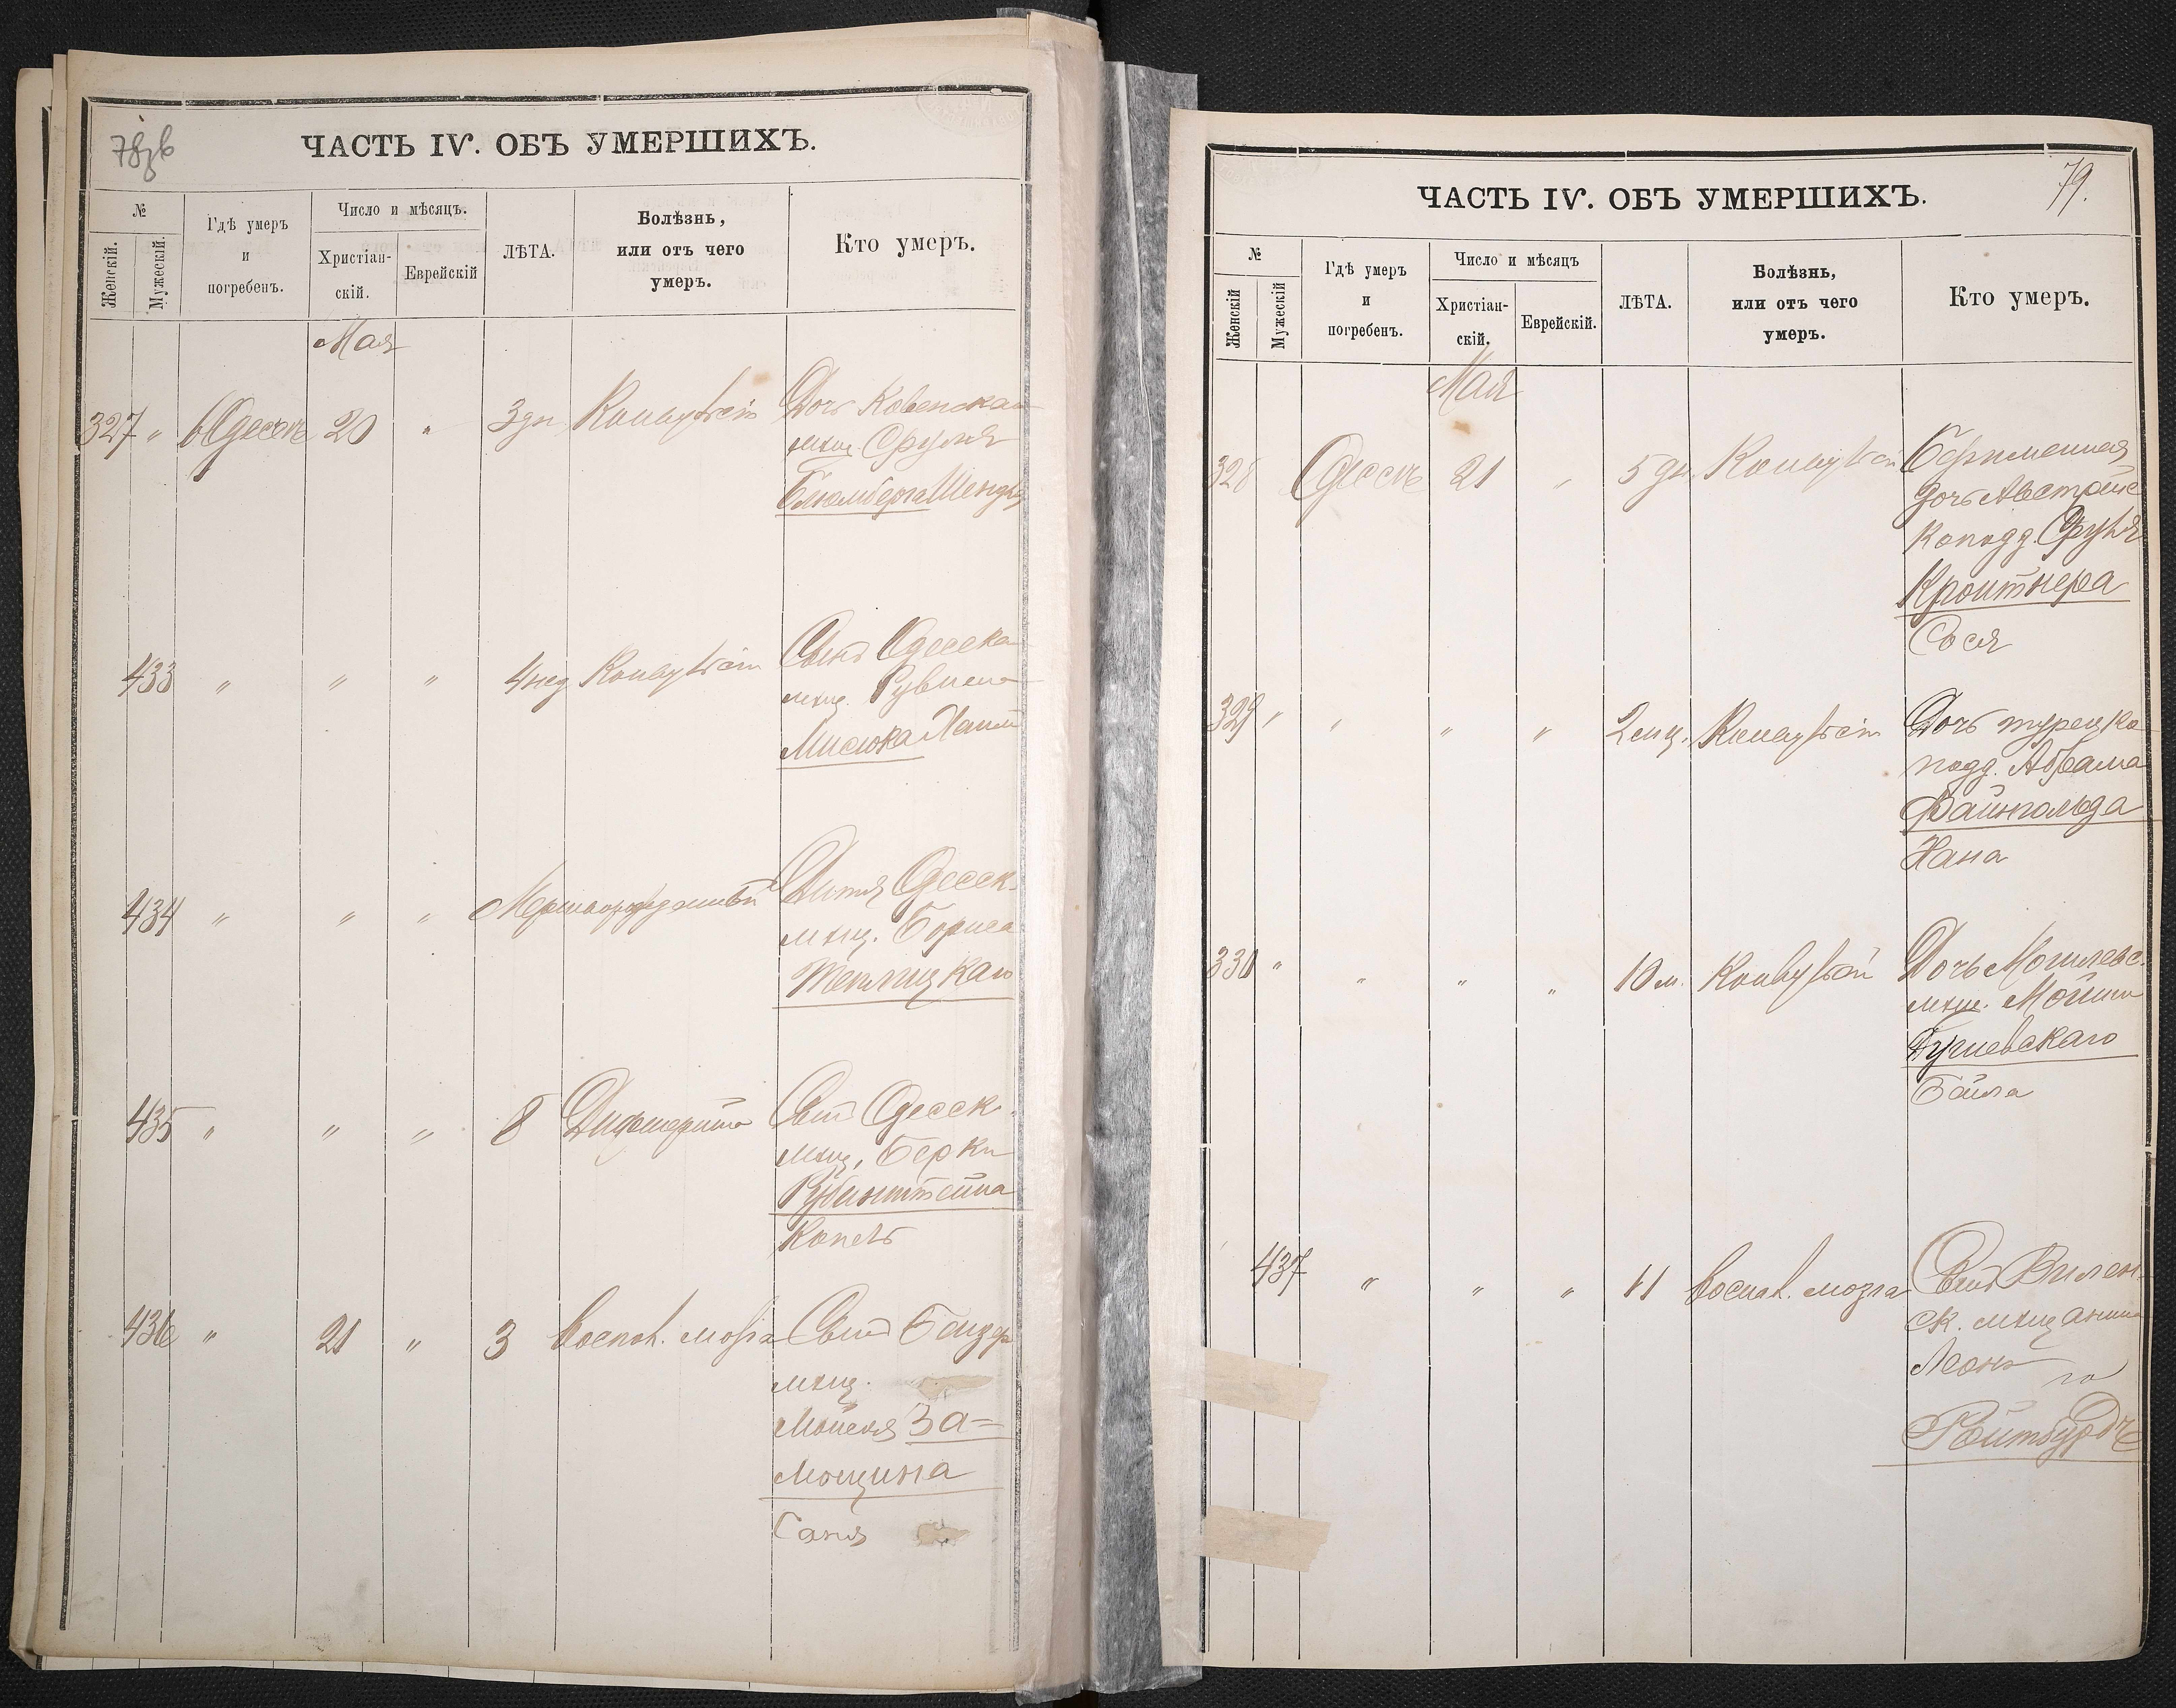 78зв
ЧАСТЬ IV. ОБЪ УМЕРШИХЪ.
№
Женскій.
Мужескій.
Гдѣ умеръ
и
погребенъ.
Число и мѣсяцъ.
Христіан-
скій.
Еврейскій
ЛѢТА.
Болѣзнь,
или отъ чего
умеръ.
Кто умеръ.
Мая
327 " Одессѣ 20 " 3 дн. Конвульсіи Дочь Ковенскаго
мѣщ. Сруля
Блюмберга
433 " " " 4 нед Конвульсіи Сынъ Одесска
мѣщ. Рувина
Мисюка Хаим
434 " " " Мертворожденный Дитя Одесск.
мѣщ. Бориса
Теплицкаго
435 " " " 8 Дифтерита Сынъ Одесск.
мѣщ. Берки
Рубинштейна
Копель
436 " 21 " 3 воспал. мозга Сынъ
мѣщ.
Мойсея За=
мощина
Саня
79.
ЧАСТЬ IV. ОБЪ УМЕРШИХЪ.
№
Женскій
Мужескій
Гдѣ умеръ
и
погребенъ.
Число и мѣсяцъ
Христіан-
скій.
Еврейскій.
ЛѢТА.
Болѣзнь,
или отъ чего
умеръ.
Кто умеръ.
Мая
328 Одессѣ 21 " 5 дн. Конвульсіи
дочь Австрійс
ко подд. Сруля
Кройтнера
Сося
329 " " " " 2 мц. Конвульсіи Дочь турецка
подд. Абрама
Вайнгольда
Хана
330 " " " " 10 м. Конвульсіи Дочь Могилевс.
мѣщ.
Бейла
437 " " " 11 воспал. мозга Сынъ Вилен-
ск. мѣщанина
Леонъ